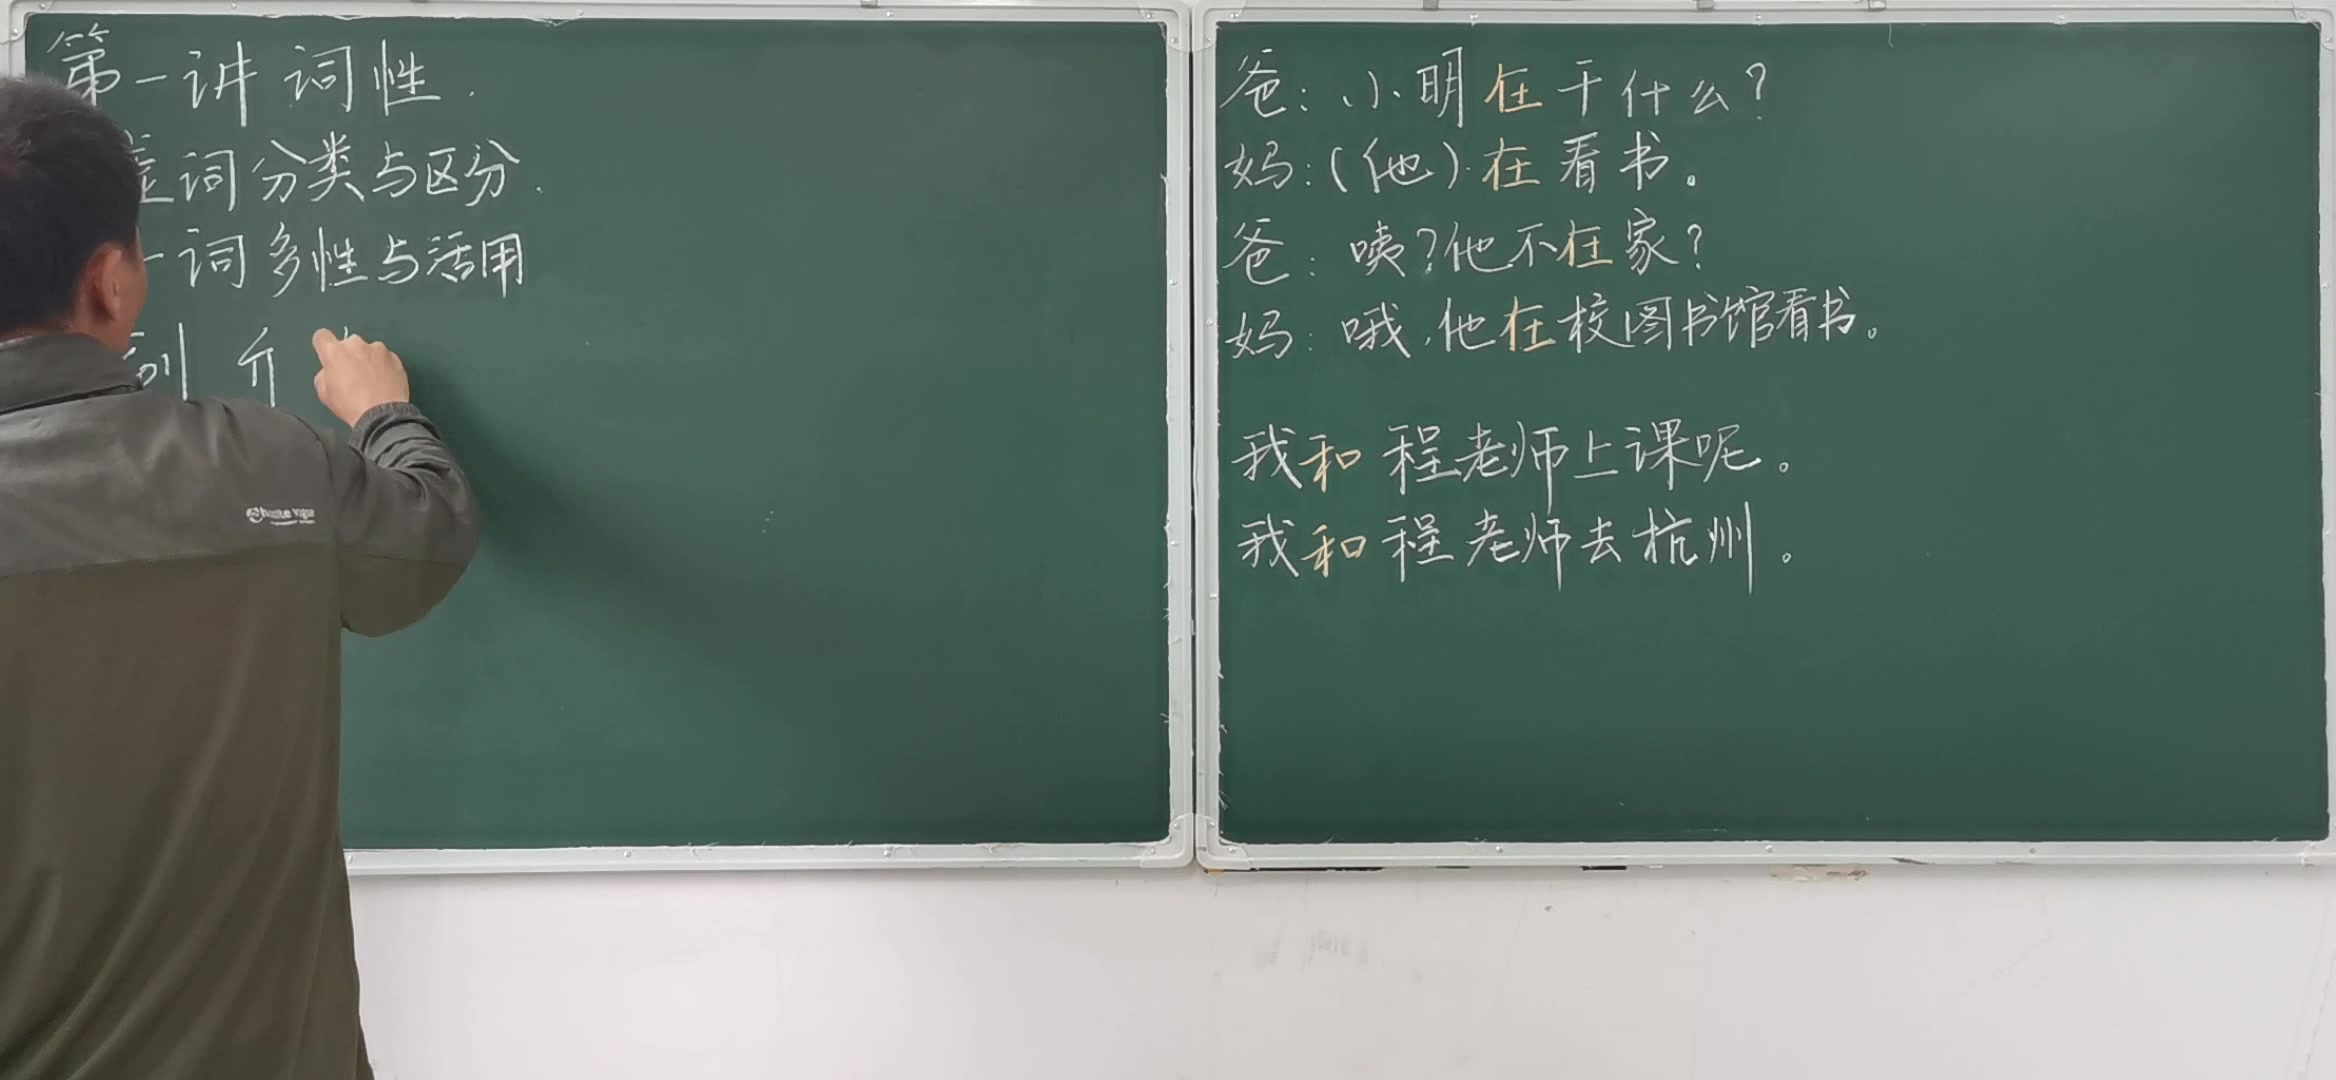 第一讲 词性.
词分类与区分.
一词多性与活用
副 介
爸：小明在干什么？
妈：(他)在看书。
爸：咦？他不在家？
妈：哦，他在校图书馆看书。
我和程老师上课呢。
我和程老师去杭州。